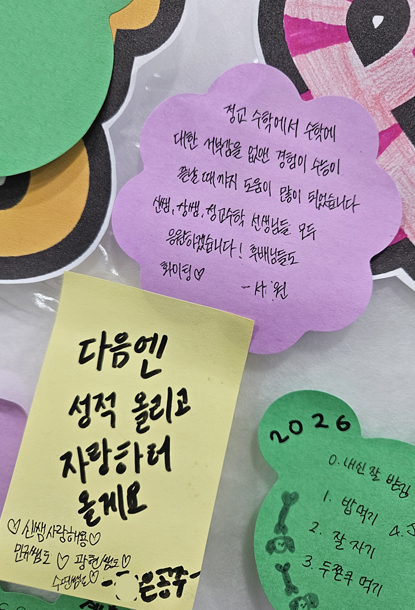 정교 수학에서 수학에
대한 거부감을 없앤 경험이 수능이
끝날 때까지 도움이 많이 되었습니다
신쌤, 상쌤, 정교수학 선생님들 모두
응원하겠습니다! 후배님들도
화이팅♡
-서 원
다음엔
성적 올리고
자랑하러
올게요
♡신쌤사랑해용♡
민규쌤도♡ 광현쌤도♡
수민쌤도♡
은공주-
2026
0. 내신 잘 받김
1. 밥먹기
2. 잘 자기
3. 두쫀쿠 먹기